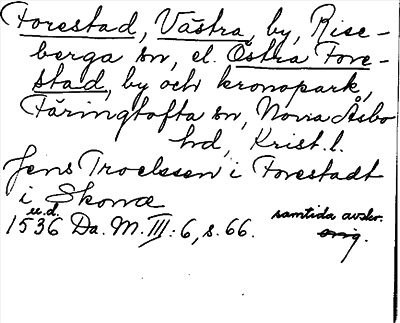 Forestad, Västra, by, Rise-
berga sn, el. Östra Fore-
stad, by och kronopark,
Färingtofta sn, Norra Åsbo
hd, Krist. l.
Jens Troelssen i Forestadt
i Skonæ
u.d.
1536 Da. M. III: 6, s. 66. samtida avskr.
orig.